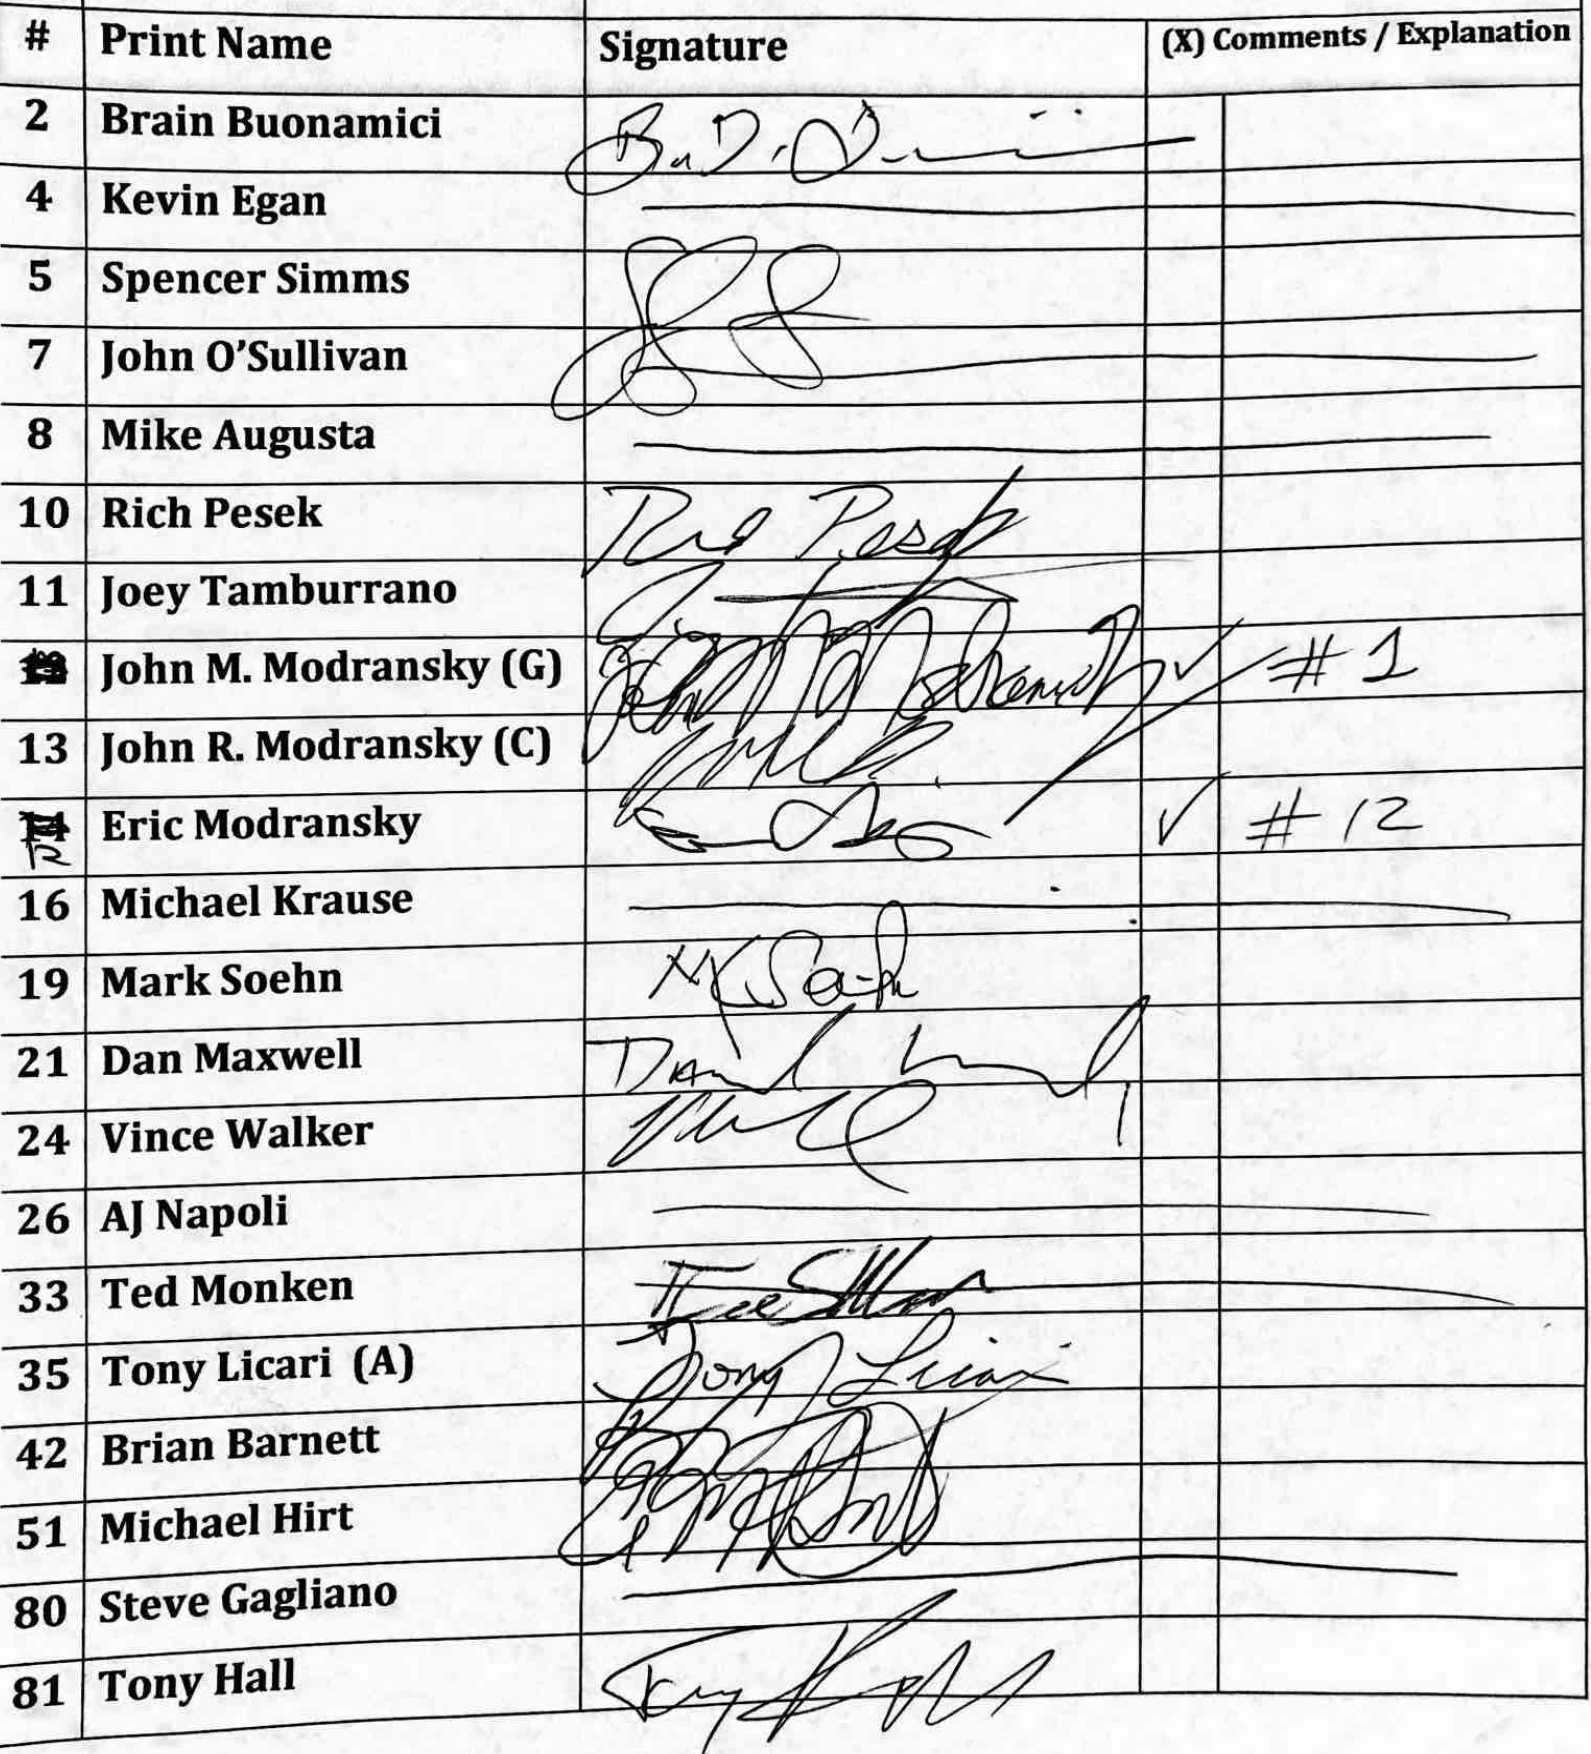 # Print Name Signature (X) Comments / Explanation
2 Brain Buonamici
4 Kevin Egan
5 Spencer Simms
7 John O'Sullivan
8 Mike Augusta
10 Rich Pesek Pesek
11 Joey Tamburrano
John M. Modransky (G) John M Modransky ✓ # 1
13 John R. Modransky (C)
12 Eric Modransky ✓ # 12
16 Michael Krause
19 Mark Soehn
21 Dan Maxwell
24 Vince Walker
26 AJ Napoli
33 Ted Monken
35 Tony Licari (A) Tony Licari
42 Brian Barnett
51 Michael Hirt
80 Steve Gagliano
81 Tony Hall Tony